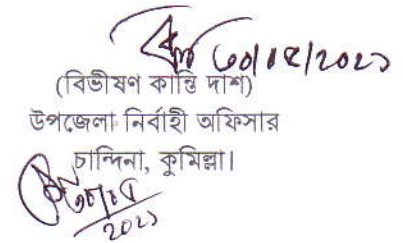 ৩০/০৫/২০২১
(বিভীষণ কান্তি দাশ)
উপজেলা নির্বাহী অফিসার
চান্দিনা, কুমিল্লা।
৩০/০৫
২০২১